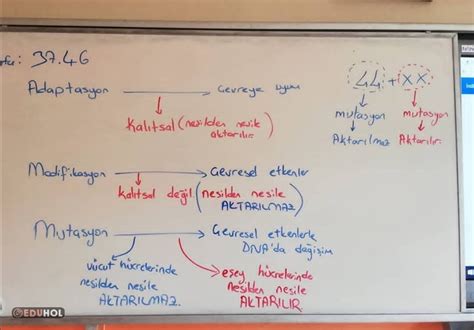 37.46
Adaptasyon → Çevreye uyum
Kalıtsal (nesilden nesile
aktarılır
44 + XX
mutasyon mutasyon
Aktarılmaz Aktarılır
Modifikasyon → Çevresel etkenler
kalıtsal değil (nesilden nesile
AKTARILMAZ
Mutasyon → Çevresel etkenlerle
DNA'da değişim
vücut hücrelerinde
nesilden nesile
AKTARILMAZ.
eşey hücrelerinde
nesilden nesile
AKTARILIR
EDUHOL